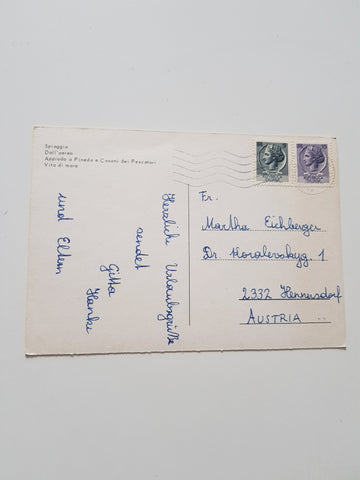 Spiaggia
Dall'aereo
Approdo a Pineda e Casoni dei Pescatori
Vita di mare
Herzliche Urlaubsgrüße
sendet
Gitta Hanke
und Eltern
Fr.
Martha Eichberger
Dr. Koralevskyg. 1
2332 Hennersdorf
AUSTRIA